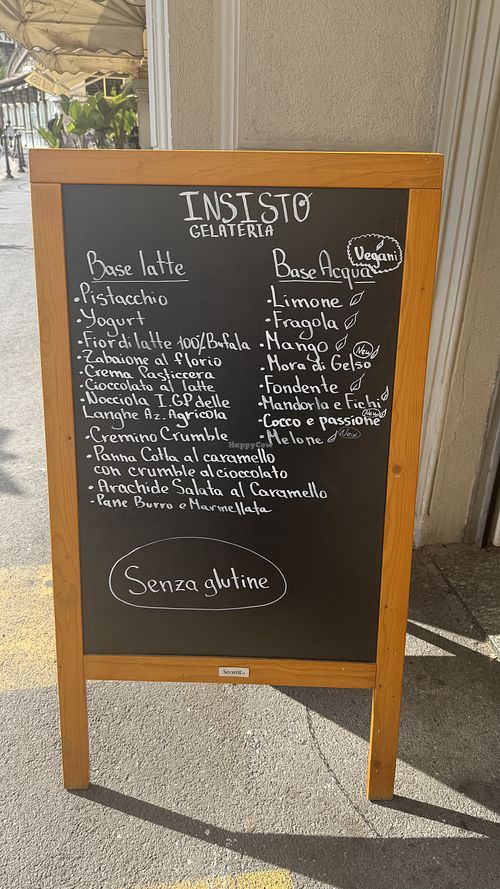 INSISTO
GELATERIA
Base latte
• Pistacchio
• Yogurt
• Fior di latte 100% Bufala
• Zabaione al florio
• Crema Pasticcera
• Cioccolato al latte
• Nocciola I.GP. delle
Langhe Az. Agricola
• Cremino Crumble
• Panna Cotta al caramello
con crumble al cioccolato
• Arachide Salata al Caramello
• Pane Burro e Marmellata
Base Acqua
Vegani
• Limone
• Fragola
• Mango
• Mora di Gelso New
• Fondente
• Mandorla e Fichi
• Cocco e passione New
• Melone New
HappyCow
Senza glutine
Securit